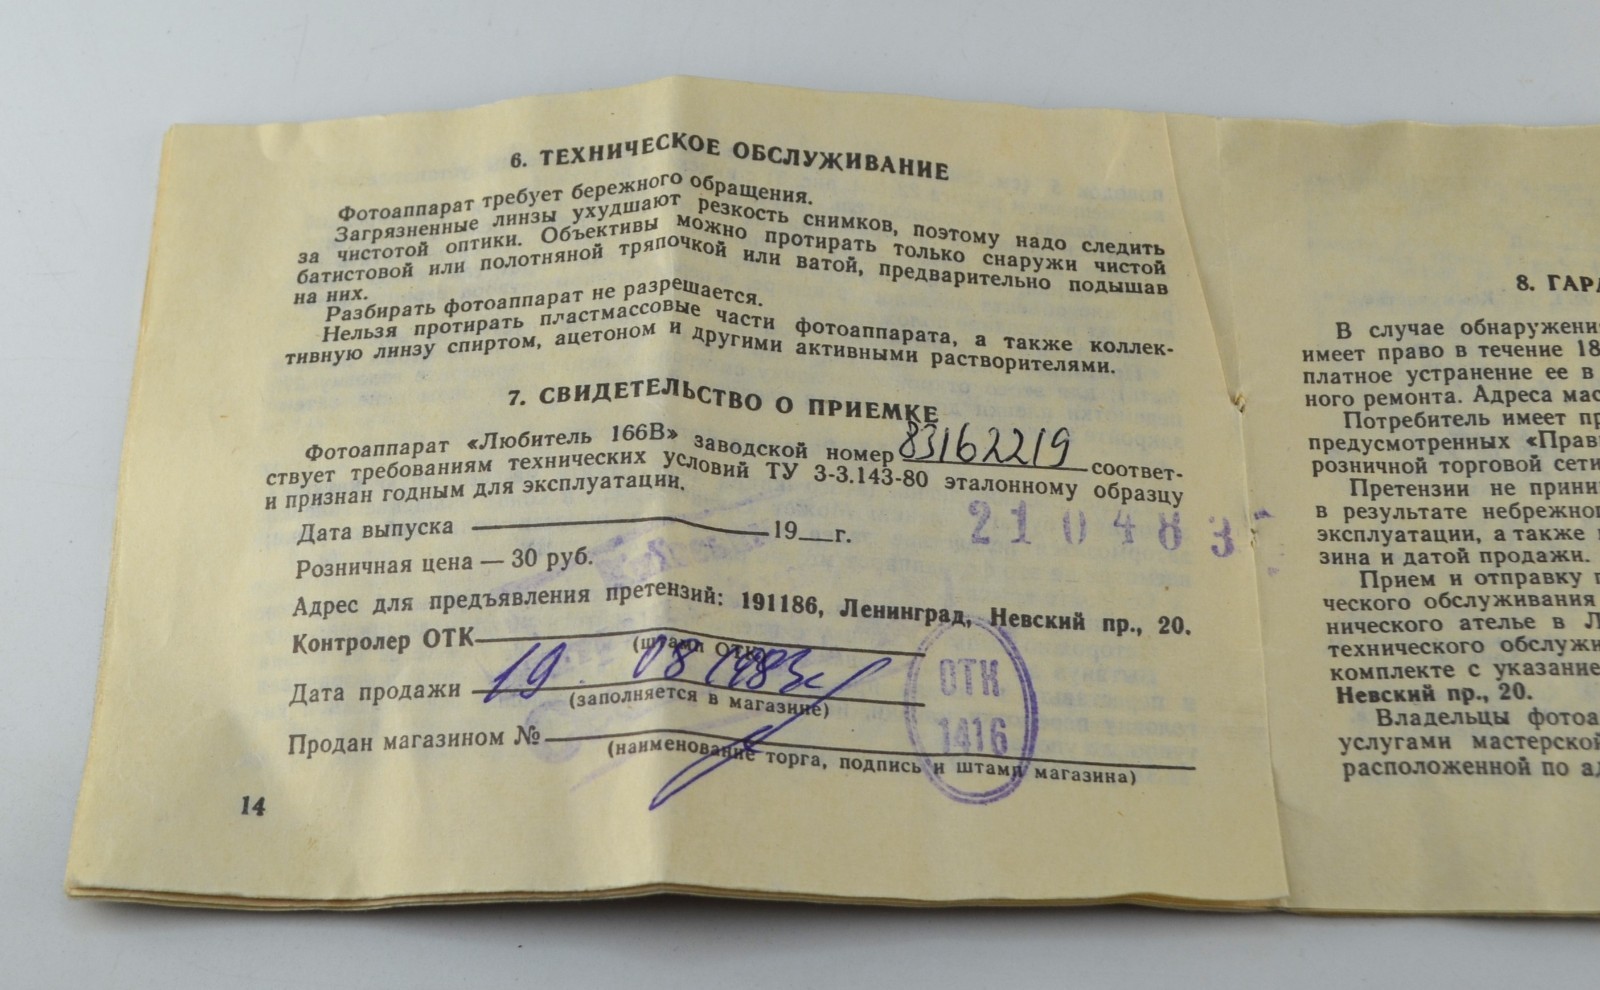 6. ТЕХНИЧЕСКОЕ ОБСЛУЖИВАНИЕ
Фотоаппарат требует бережного обращения.
Загрязненные линзы ухудшают резкость снимков, поэтому надо следить
за чистотой оптики. Объективы можно протирать только снаружи чистой
батистовой или полотняной тряпочкой или ватой, предварительно подышав
на них.
Разбирать фотоаппарат не разрешается.
Нельзя протирать пластмассовые части фотоаппарата, а также коллек-
тивную линзу спиртом, ацетоном и другими активными растворителями.
7. СВИДЕТЕЛЬСТВО О ПРИЕМКЕ
Фотоаппарат «Любитель 166В» заводской номер 83162219 соответ-
ствует требованиям технических условий ТУ 3-3.143-80 эталонному образцу
и признан годным для эксплуатации.
Дата выпуска 19 г. 210483
Розничная цена — 30 руб.
Адрес для предъявления претензий: 191186, Ленинград, Невский пр., 20.
Контролер ОТК
(штамп ОТК)
Дата продажи 19. 08 1983г
(заполняется в магазине)
Продан магазином №
(наименование торга, подпись и штамп магазина)
ОТК
1416
14
8. ГАРА
В случае обнаружени
имеет право в течение 18
платное устранение ее в
ного ремонта. Адреса мас
Потребитель имеет пр
предусмотренных «Прав
розничной торговой сети
Претензии не прини
в результате небрежног
эксплуатации, а также
зина и датой продажи.
Прием и отправку
ческого обслуживания
нического ателье в Л
технического обслужи
комплекте с указание
Невский пр., 20.
Владельцы фотоа
услугами мастерской
расположенной по ад